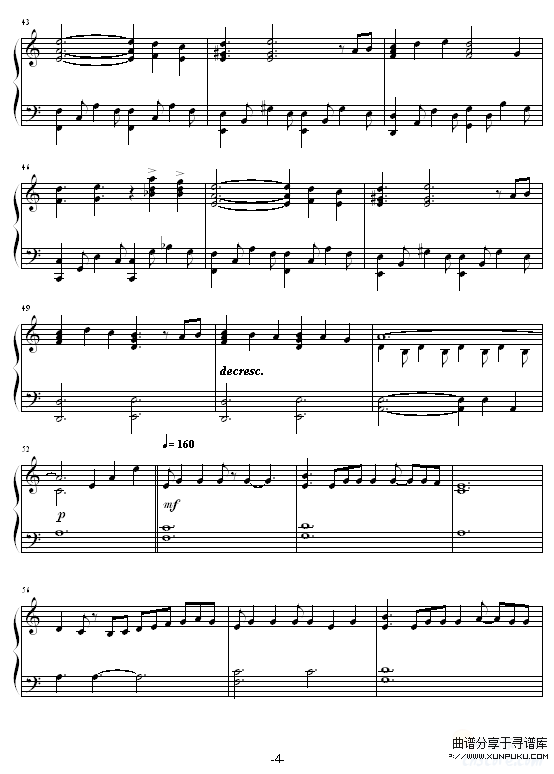 43
46
49
decresc.
52
♩= 160
p
mf
56
-4-
曲谱分享于寻谱库
WWW.XUNPUKU.COM